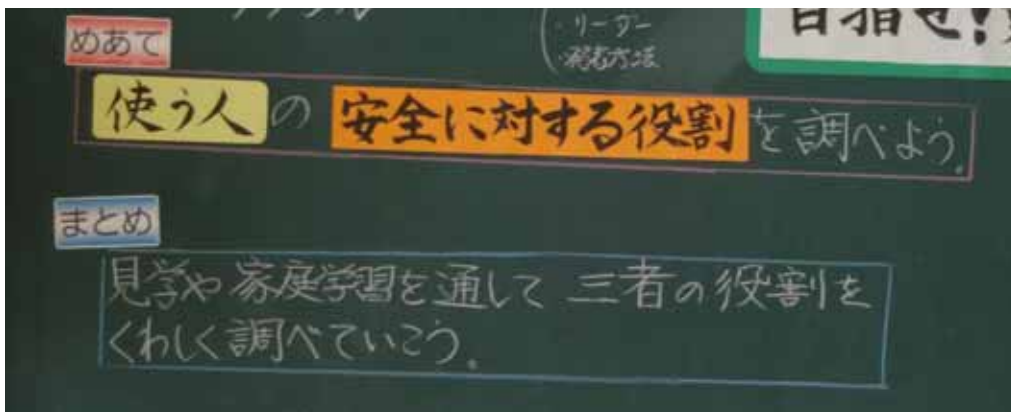 ・リーダー
・発表方法
目指せ!
めあて
使う人の安全に対する役割を調べよう。
まとめ
見学や家庭学習を通して三者の役割を
くわしく調べていこう。